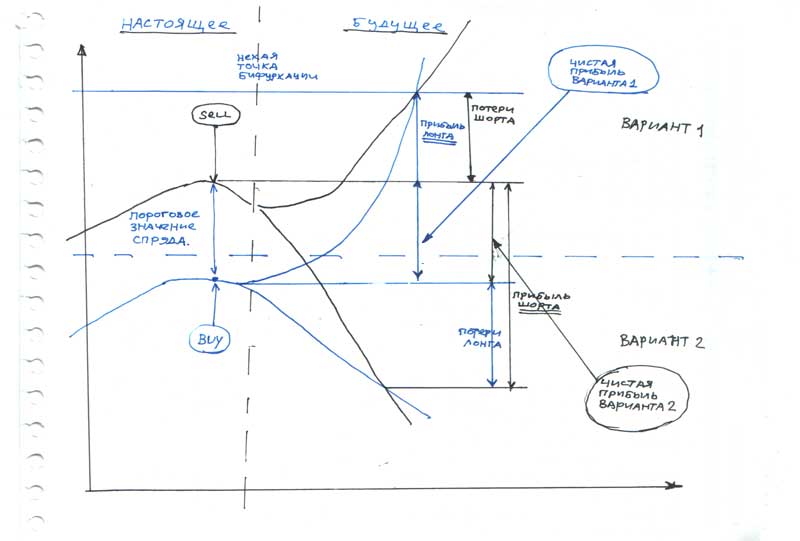 НАСТОЯЩЕЕ
БУДУЩЕЕ
НЕКАЯ
ТОЧКА
БИФУРКАЦИИ
ЧИСТАЯ
ПРИБЫЛЬ
ВАРИАНТА 1
SELL
ПРИБЫЛЬ
ЛОНГА
ПОТЕРИ
ШОРТА
ВАРИАНТ 1
ПОРОГОВОЕ
ЗНАЧЕНИЕ
СПРЯДА.
ПРИБЫЛЬ
ШОРТА
BUY
ПОТЕРИ
ЛОНГА
ВАРИАНТ 2
ЧИСТАЯ
ПРИБЫЛЬ
ВАРИАНТА 2